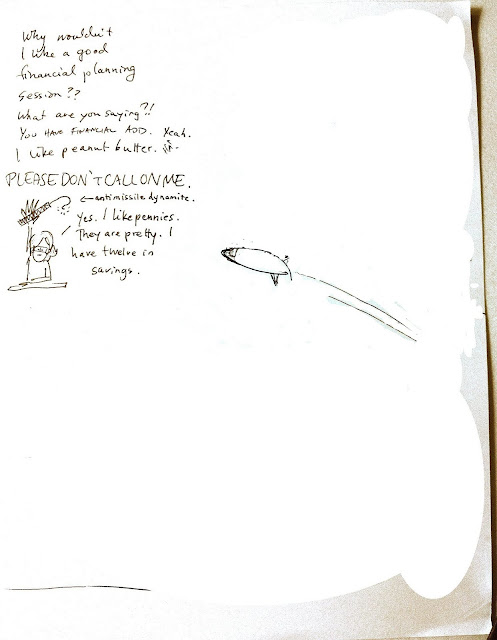 Why wouldn't
I like a good
financial planning
session??
What are you saying?!
YOU HAVE FINANCIAL ADD. Yeah.
I like peanut butter.
PLEASE DON'T CALL ON ME.
←antimissile dynamite.
Yes. I like pennies.
They are pretty. I
have twelve in
savings.